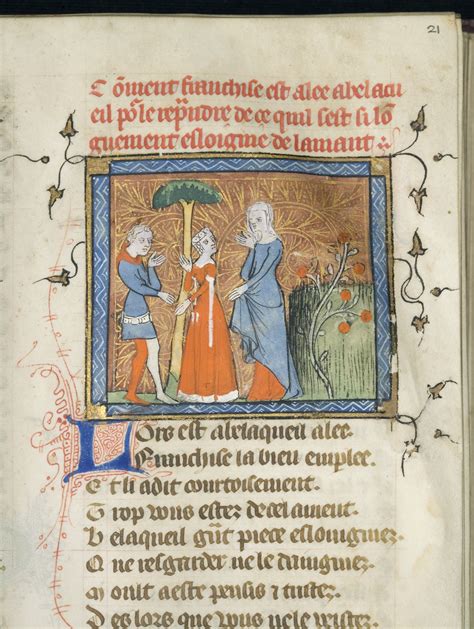 21
Cõment franchise est alee abelacu
eil põ le rep̃ndre de ce quil sest si lõ
guement esloigne de lamant
Lors est abelaqueil alee
Franchise la bieu emplee
Et li a dit courtoisement
Trop vous estez de cel amēt
Belaqueil gñt piece eslongniez
Qne resgarder ne le daingniez
Moult a este pensis & tristes
Des lors que vous ne le veistes